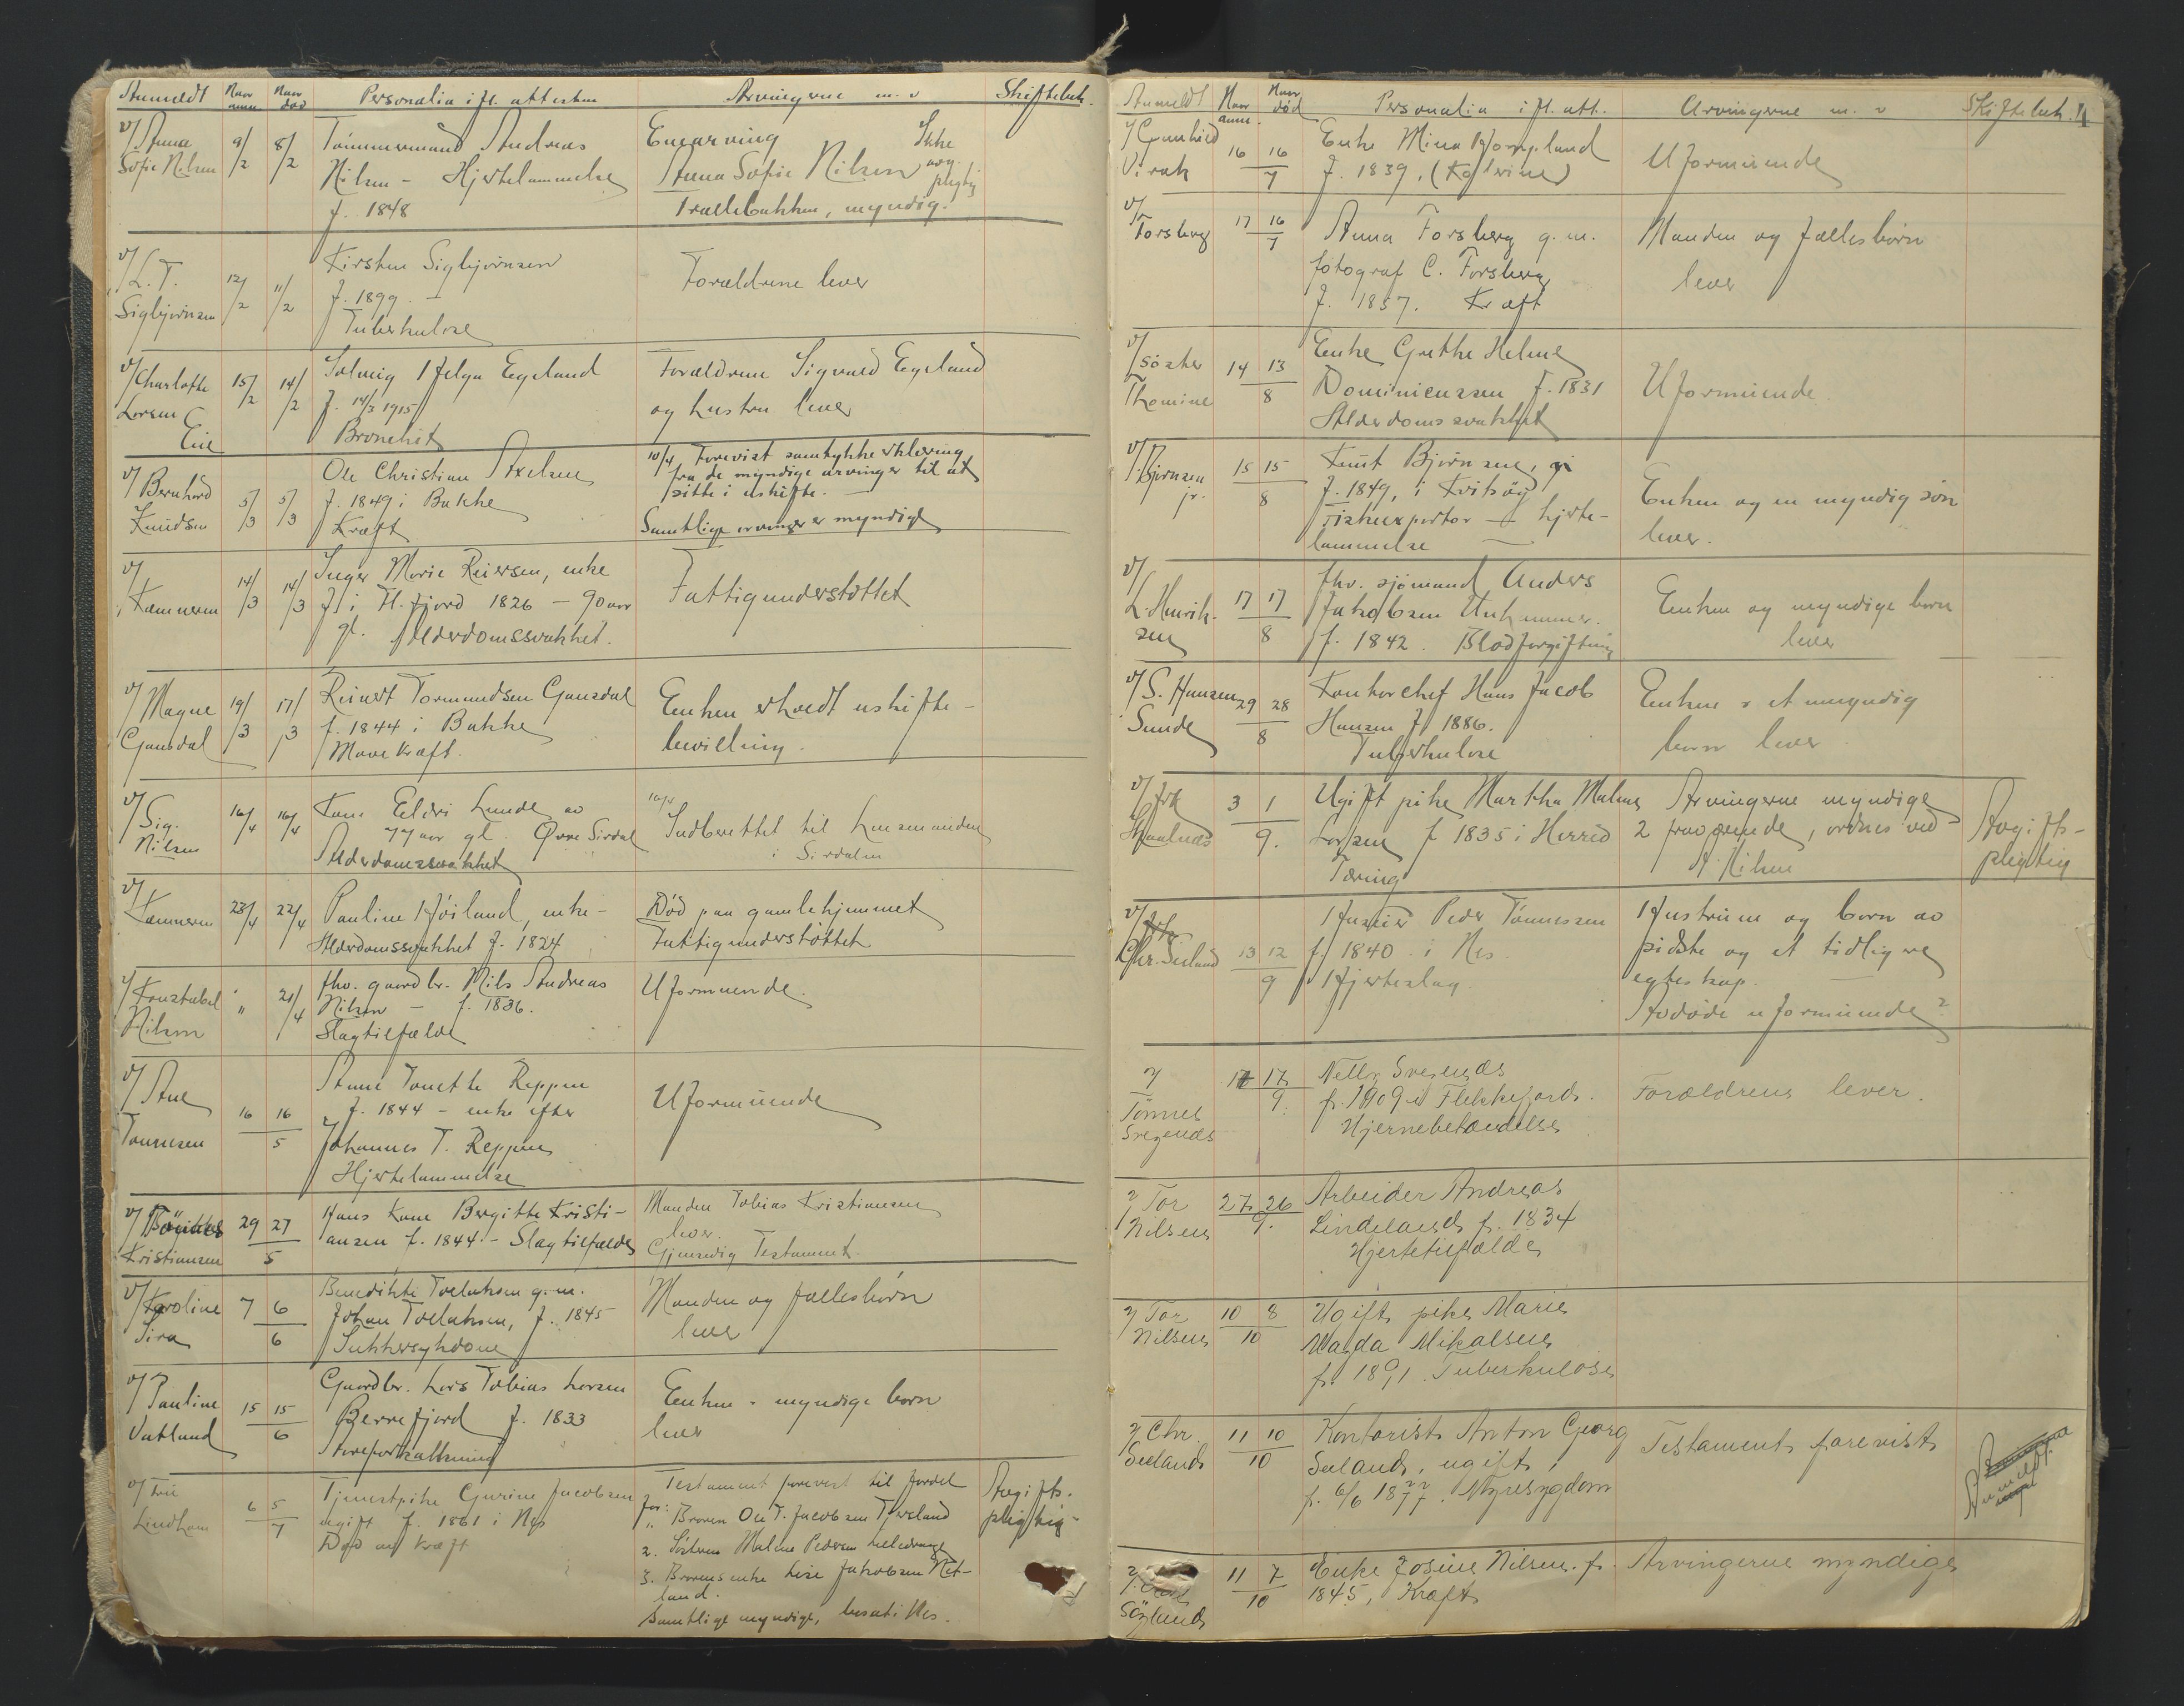 Anmeldt Naar anm. Naar död Personalia ifl. attesten Arvingerne m. v Skiftebeh.
v/ Anna Sofie Nilsen 9/2 8/2
Tömmermand Andreas
Nilsen - Hjertelammelse
f. 1848
Enearving Ikke
Anna Sofie Nilsen avg.
pligtig
Trællebakken, myndig.
v/ L. T. Sigbjörnsen 12/2 11/2
Kirsten Sigbjörnsen
f. 1899. -
Tuberkulose
Forældrene lever
v/ Charlotte Larsen Eie 15/2 14/2
Solveig Helga Egeland
f. 14/3 1915
Bronchit
Forældrene Sigvald Egeland
og hustru lever
v/ Bernhard Knudsen 5/3 5/3
Ole Christian Axelsen
f. 1849 i Bakke
Kræft
10/4 Forevist samtykkeerklæring
fra de myndige arvinger til at
sitte i uskifte. -
Samtlige arvinger er myndige
v/ Kæmneren 14/3 14/3
Inger Marie Reiersen, enke
f. i Fl.fjord 1826 - 90 aar
gl. Alderdomssvakhet.
Fattigunderstöttet
v/ Magne Gausdal 19/3 17/3
Reinert Tormundsen Gausdal
f. 1844 i Bakke
Mavekræft.
Enken erholdt uskifte-
bevilling.
v/ Sig. Nilsen 16/4 16/4
Kone Eldri Lunde av
77 aar gl. Övre Sirdal
Alderdomssvakhet
16/4
Indberettet til Lensmanden
i Sirdalen
v/ Kæmneren 23/4 22/4
Pauline Höiland, enke -
Alderdomssvakhet f. 1824
Död paa gamlehjemmet
Fattigunderstöttet
v/ Konstabel Nilsen " 21/4
fhv. gaardbr. Nils Andreas
Nilsen - f. 1836.
Slagtilfælde
Uformuende.
v/ Ane Tönnesen 16 16/5
Anne Tonette Reppen
f. 1844 - enke efter
Johannes T. Reppen
Hjertelammelse
Uformuende
v/ Kristiansen 29 27/5
Hans Kone Bergitte Kristi-
ansen f. 1844. - Slagtilfælde
Manden Tobias Kristiansen
lever.
Gjensidig Testament.
v/ Karoline Sira 7 6/6
Benedikte Torlaksen g. m.
Johan Torlaksen, f. 1845
Sukkersykdom
Manden og fællesbörn
lever
v/ Pauline Vatland 15 15/6
Gaardbr. Lars Tobias Larsen
Berrefjord f. 1833
Aareforkalkning
Enken + myndige börn
lever
v/ Fru Lindham 6 5/7
Tjenestepike Gurine Jacobsen
ugift f. 1861 i Nes
Död av kræft
Testament forevist til fordel
for:
1. Broren Ole T. Jacobsen Tjersland
2. Söstren Malene Pedersen
3. Brorens enke Lise Jakobsen Net-
land.
Samtlige myndige, bosat i Nes.
Avgifts-
pligtig
Anmeldt Naar anm. Naar död Personalia ifl. att. Arvingerne m. v Skiftebeh. 4
v/ Gunhild Virak 16 16/7
Enke Mina Hompland
f. 1839. (Kolerine)
Uformuende
v/ Forsberg 17 16/7
Anna Forsberg g. m.
fotograf C. Forsberg
f. 1857. Kræft
Manden og fællesbörn
lever
v/ Söster Thomine 14 13/8
Enke Grethe Helene
Dominicussen f. 1831
Alderdomssvakhet
Uformuende.
v/ Björnsen jr. 15 15/8
Knut Björnsen, gi
f. 1849, i Kvitsöy
Fiskeexportör - hjerte-
lammelse -
Enken og en myndig sön
lever.
v/ L. Henriksen 17 17/8
fhv. sjömand Anders
Jakobsen Unhammer.
f. 1842. Blodforgiftning
Enken og myndige börn
lever
v/ S. Hansen Sunde 29 28/8
Kontorchef Hans Jacob
Hansen f. 1886.
Tuberkulose
Enken + et umyndig
barn lever
v/ frk 3 1/9.
Ugift pike Martha Malene
Larsen f 1835 i Herred
Tæring
Arvingerne myndige
2 fraværende, ordnes ved
A. Nilsen
Avgifts-
pligtig
v/ Chr. Seeland 13 12/9
Huseier Peder Tönnessen
f. 1840. i Nes.
Hjerteslag.
Hustruen og börn av
sidste og et tidligere
egteskap.
Avdöde uformuende?
v/ Tönnes Svegends 17 17/9.
Nelly Svegends
f. 1909 i Flekkefjord.
Hjernebetændelse
Forældrene lever.
v/ Tor Nilsen 27. 26/9.
Arbeider Andreas
Lindeland f. 1834
Hjertetilfælde
v/ Tor Nilsen 10 8/10
Ugift pike Marie
Magda Mikalsen
f. 1891. Tuberkulose
v/ Chr. Seeland 11 10/10
Kontorist Anton Georg
Seeland, ugift,
f. 6/6 1877. Nyresygdom
Testament forevist
v/ 11 7/10
Enke Josine Nilsen. f.
1845, Kræft
Arvingerne myndige